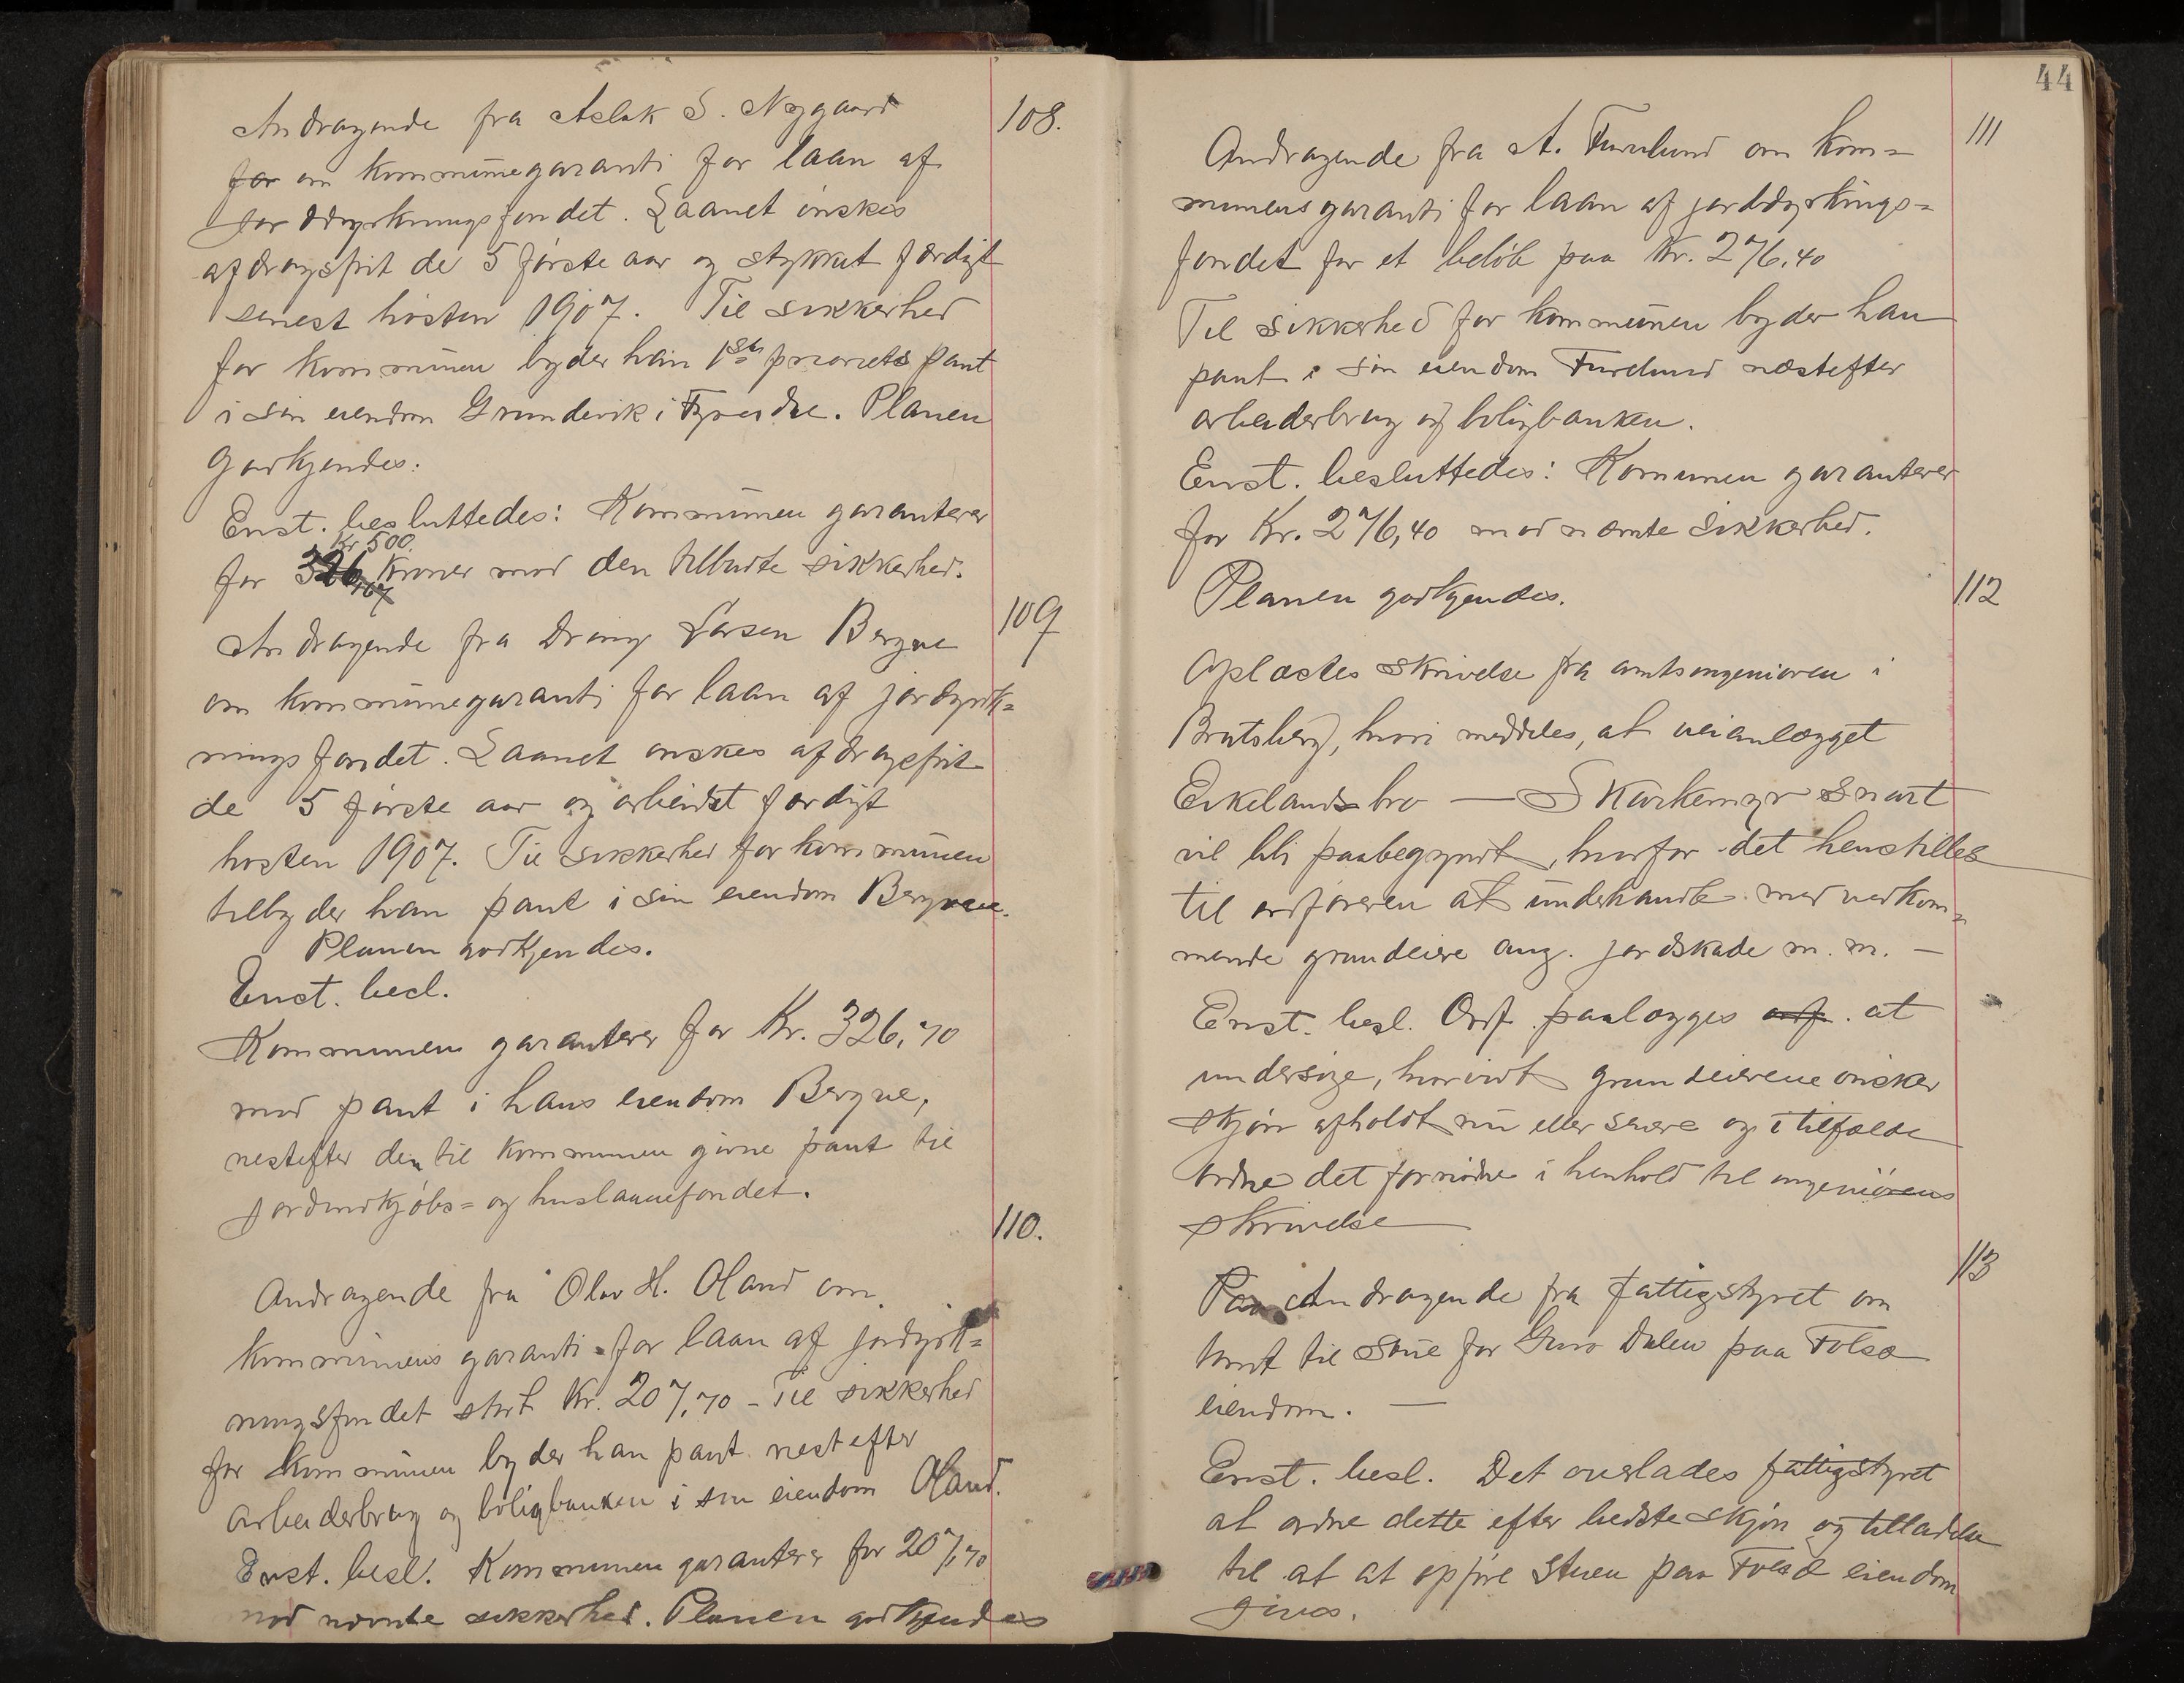 108.
Andragende fra Aslak S. Nygaard
for om kommunegaranti for laan af
jorddyrkningsfondet. Laanet ønskes
afdragsfrit de 5 første aar og stykket færdigt
senest høsten 1907. Til sikkerhed
for kommunen byder han 1ste prioritets pant
i sin eiendom Grundevik i Fyresdal. Planen
godkjendes.
Enst. besluttedes: Kommunen garanterer
Kr 500.
for 326,70 kroner mod den tilbudte sikkerhed.
109
Andragende fra Dreng Larsen Bergne
om kommunegaranti for laan af jordyrk=
ningsfondet. Laanet ønskes afdragsfrit
de 5 første aar og arbeidet færdigt
høsten 1907. Til sikkerhed for kommunen
tilbyder han pant i sin eiendom Bergne.
Planen godkjendes.
Enst. besl.
Kommunen garanterer for Kr. 326,70
mod pant i hans eiendom Bergne,
nestefter den til kommunen givne pant til
jordindkjøbs= og huslaanefondet.
110.
Andragende fra Olav H. Oland om
kommunens garanti for laan af jordyrk=
ningsfondet stort Kr. 207,70 - Til sikkerhed
for kommunen byder han pant nestefter
arbeiderbrug og boligbanken i sin eiendom Oland.
Enst. besl. Kommunen garanterer for 207,70
mod nævnte sikkerhed. Planen godkjendes
44
111
Andragende fra A. Furulund om kom=
munens garanti for laan af jorddyrknings=
fondet for et beløb paa Kr. 276,40
Til sikkerhed for kommunen byder han
pant i sin eiendom Furulund næstefter
arbeiderbrug og boligbanken.
Enst. besluttedes: Komunen garanterer
for Kr. 276,40 mod nævnte sikkerhed.
Planen godkjendes.
112
Oplæstes skrivelse fra amtsingeniøren i
Bratsberg, hvori meddeles, at veianlægget
Eikelands bro — Skarkemyr snart
vil bli paabegyndt, hvorfor det henstilles
til ordføreren at underhandle med vedkom=
mende grundeiere ang. jordskade m. m. —
Enst. besl. Ordf. paalægges ordf. at
undersøge, hvorvidt grundeierene ønsker
skjøn afholdt nu eller senere og i tilfælde
ordne det fornødne i henhold til ingeniørens
skrivelse
113
Paa Andragende fra fattigstyret om
tomt til stue for Guro Dalen paa Folsæ
eiendom. —
Enst. besl. Det overlades fattigstyret
at ordne dette efter bedste skjøn og tilladelse
til at at opføre stuen paa Folsæ eiendom
gives.